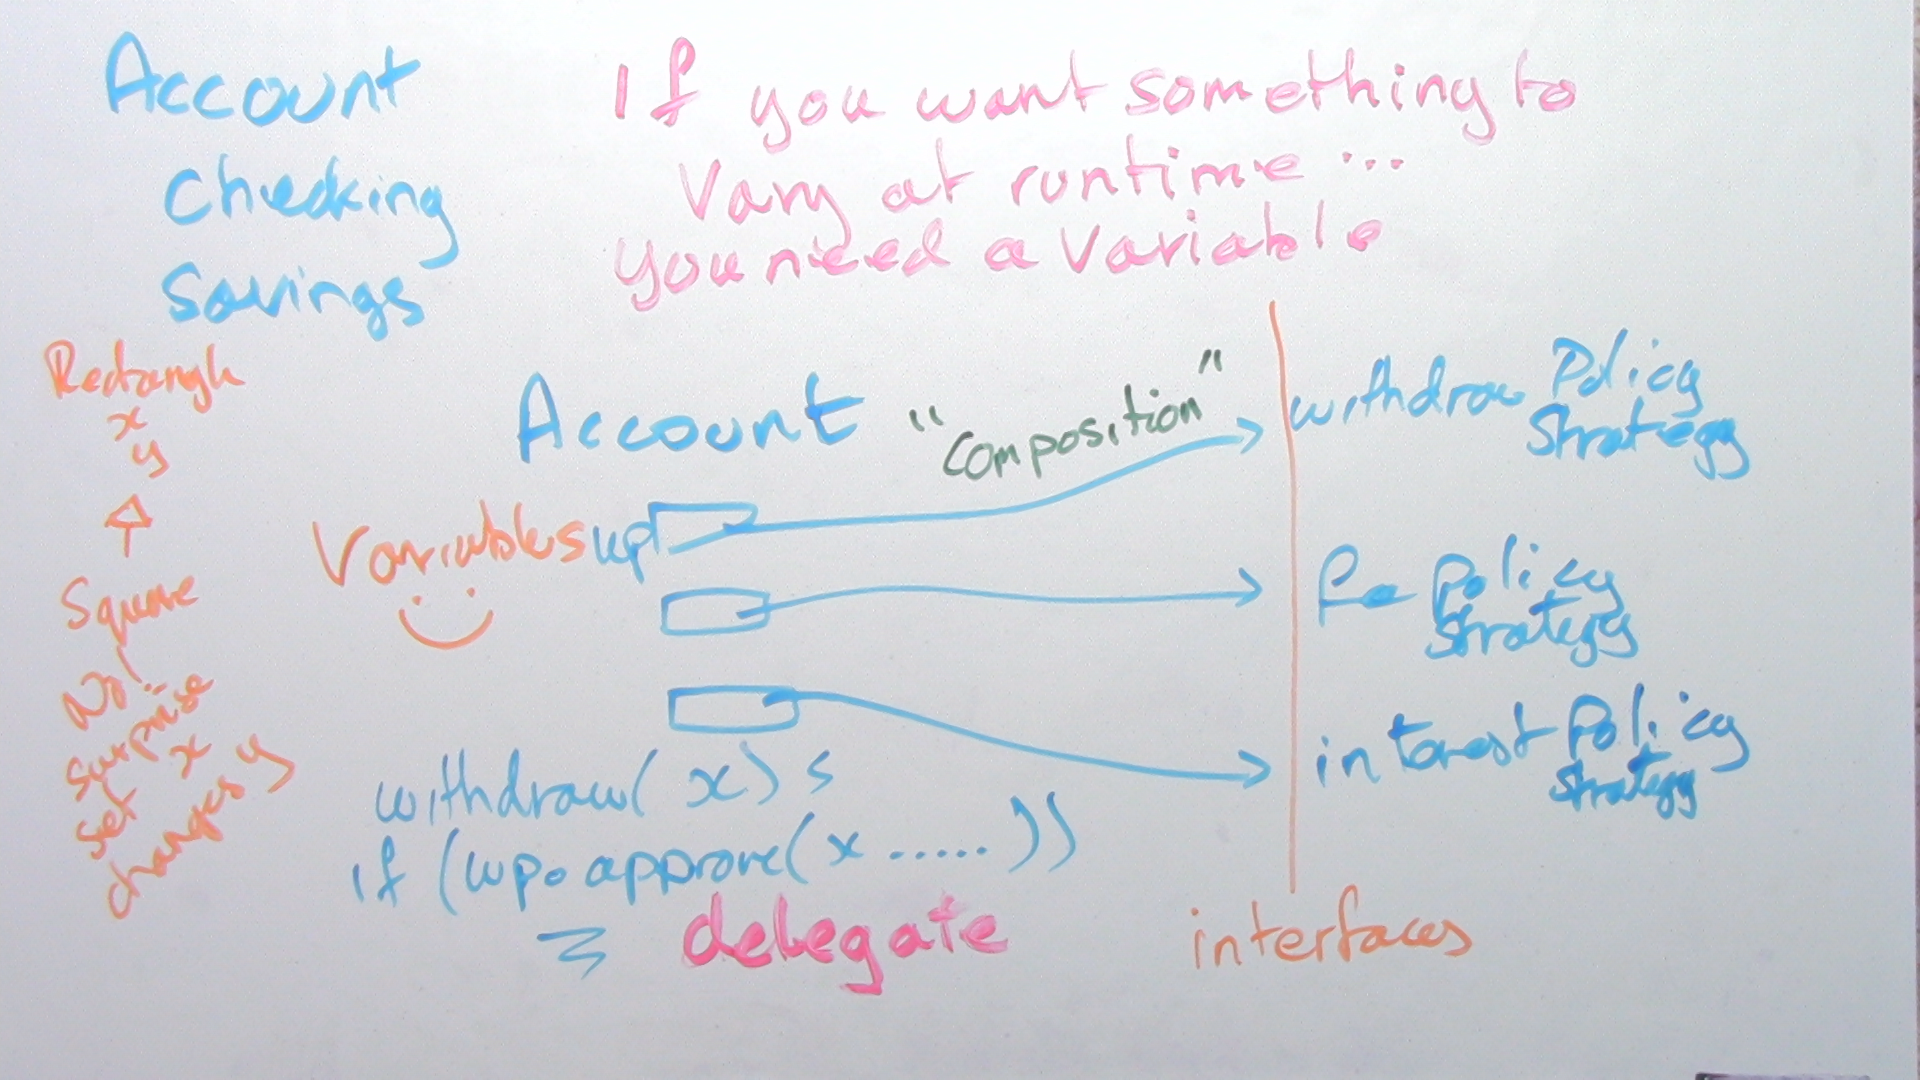 Account
Checking
Savings
If you want something to
vary at runtime ...
you need a variable
Rectangle
x
y
Square
No!
surprise
set x
changes y
Account
"composition"
Variables wp
withdraw Policy
Strategy
fee Policy
Strategy
interest Policy
Strategy
withdraw( x ) {
if (wp.approve( x ..... ))
delegate
interfaces